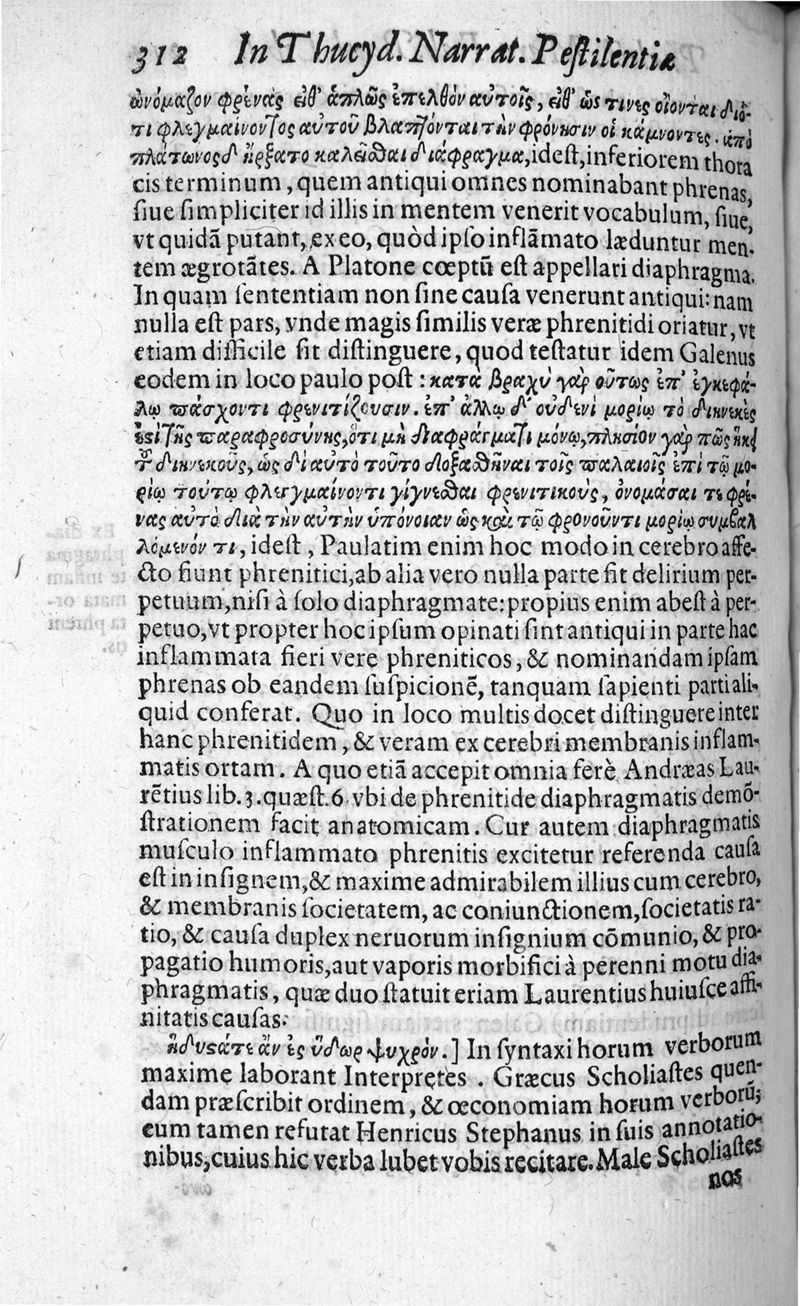 312 In Thucyd. Narrat. Peſtilentiæ
ὠνόμαζον φρένας εἰθ' ἁπλῶς ἐπελθὸν αὐτοῖς, εἰθ' ὥς τινες οἴονται διό-
τι φλεγμαίνοντος αὐτοῦ βλάπτονται τὴν φρόνησιν οἱ κάμνοντες. ἀπὸ
πλάτωνος δ' ἤρξατο καλεῖσθαι διάφραγμα, ideſt, inferiorem thora
cis terminum, quem antiqui omnes nominabant phrenas,
ſiue ſimpliciter id illis in mentem venerit vocabulum, ſiue,
vt quidã putant, ex eo, quòd ipſo inflãmato læduntur men-
tem ægrotãtes. A Platone cœptũ eſt appellari diaphragma.
In quam ſententiam non ſine cauſa venerunt antiqui: nam
nulla eſt pars, vnde magis ſimilis veræ phrenitidi oriatur, vt
etiam difficile ſit diſtinguere, quod teſtatur idem Galenus
eodem in loco paulo poſt: κατὰ βραχὺ γὰρ οὕτως ἐπ' ἐγκεφά-
λῳ πάσχοντι φρενιτίζουσιν. ἐπ' ἄλλῳ δ' οὐδενὶ μορίῳ τὸ διηνεκὲς
ἐστὶ τῆς παραφροσύνης, ὅτι μὴ διαφράγματι μόνῳ, πλησίον γάρ πῶς ἥκει
τοῦ διηνεκοῦς, ὡς δι αὐτὸ τοῦτο δοξασθῆναι τοῖς παλαιοῖς ἐπὶ τῷ μο-
ρίῳ τούτῳ φλεγμαίνοντι γίγνεσθαι φρενιτικοὺς, ὀνομάσαι τε φρέ-
νας αὐτὸ διὰ τὴν αὐτὴν ὑπόνοιαν ὡς καὶ τῷ φρονοῦντι μορίῳ συμβαλ
λόμενόν τι, ideſt, Paulatim enim hoc modo in cerebro affe-
cto fiunt phrenitici, ab alia vero nulla parte fit delirium per-
petuum, niſi à ſolo diaphragmate: propius enim abeſt à per-
petuo, vt propter hoc ipſum opinati ſint antiqui in parte hac
inflammata fieri vere phreniticos, & nominandam ipſam
phrenas ob eandem ſuſpicionẽ, tanquam ſapienti parti ali-
quid conferat. Quo in loco multis docet diſtinguere inter
hanc phrenitidem, & veram ex cerebri membranis inflam-
matis ortam. A quo etiã accepit omnia ferè Andræas Lau-
rẽtius lib. 3. quæſt. 6 vbi de phrenitide diaphragmatis demõ-
ſtrationem facit anatomicam. Cur autem diaphragmatis
muſculo inflammato phrenitis excitetur referenda cauſa
eſt in inſignem, & maxime admirabilem illius cum cerebro,
& membranis ſocietatem, ac coniunctionem, ſocietatis ra-
tio, & cauſa duplex neruorum inſignium cõmunio, & pro-
pagatio humoris, aut vaporis morbifici à perenni motu dia-
phragmatis, quæ duo ſtatuit eriam Laurentius huiuſce affi-
nitatis cauſas.
ἥδιστά τε ἂν ἐς ὕδωρ ψυχρόν.] In ſyntaxi horum verborum
maxime laborant Interpretes. Græcus Scholiaſtes quen-
dam præſcribit ordinem, & œconomiam horum verborũ;
eum tamen refutat Henricus Stephanus in ſuis annotatio-
nibus, cuius hic verba lubet vobis recitare. Male Scholiaſtes
nos